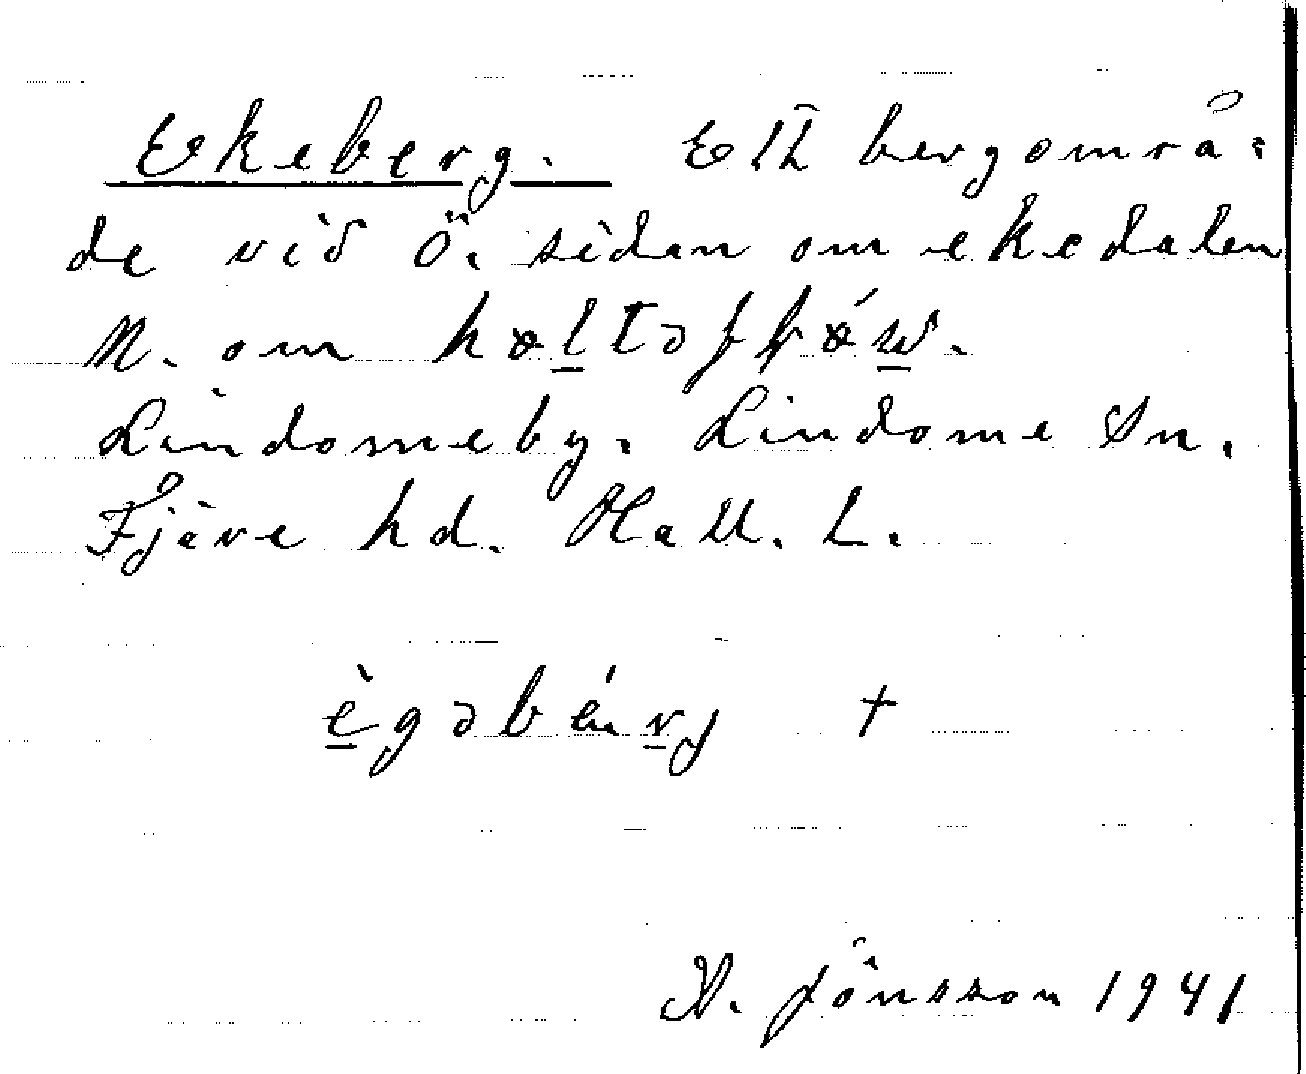 Ekeberg. Ett bergområ:
de vid Ö. sidan om ekedalen
N. om
Lindomeby. Lindome Sn.
Fjäre hd. Hall. L.
ègəbérj +
Jönsson 1941